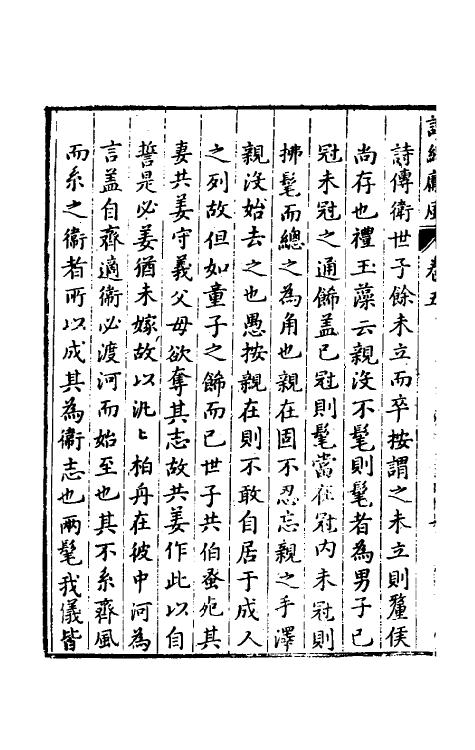 詩經鄘風 卷五
詩傳衛世子餘未立而卒按謂之未立則釐侯
尚存也禮玉藻云親沒不髦則髦者為男子已
冠未冠之通飾盖已冠則髦當在冠内未冠則
拂髦而總之為角也親在固不忍忘親之手澤
親沒始去之也愚按親在則不敢自居于成人
之列故但如童子之飾而已世子共伯蚤死其
妻共姜守義父母欲奪其志故共姜作此以自
誓是必姜猶未嫁故以汎〻柏舟在彼中河為
言盖自齊適衛必渡河而始至也其不系齊風
而系之衛者所以成其為衛志也兩髦我儀皆